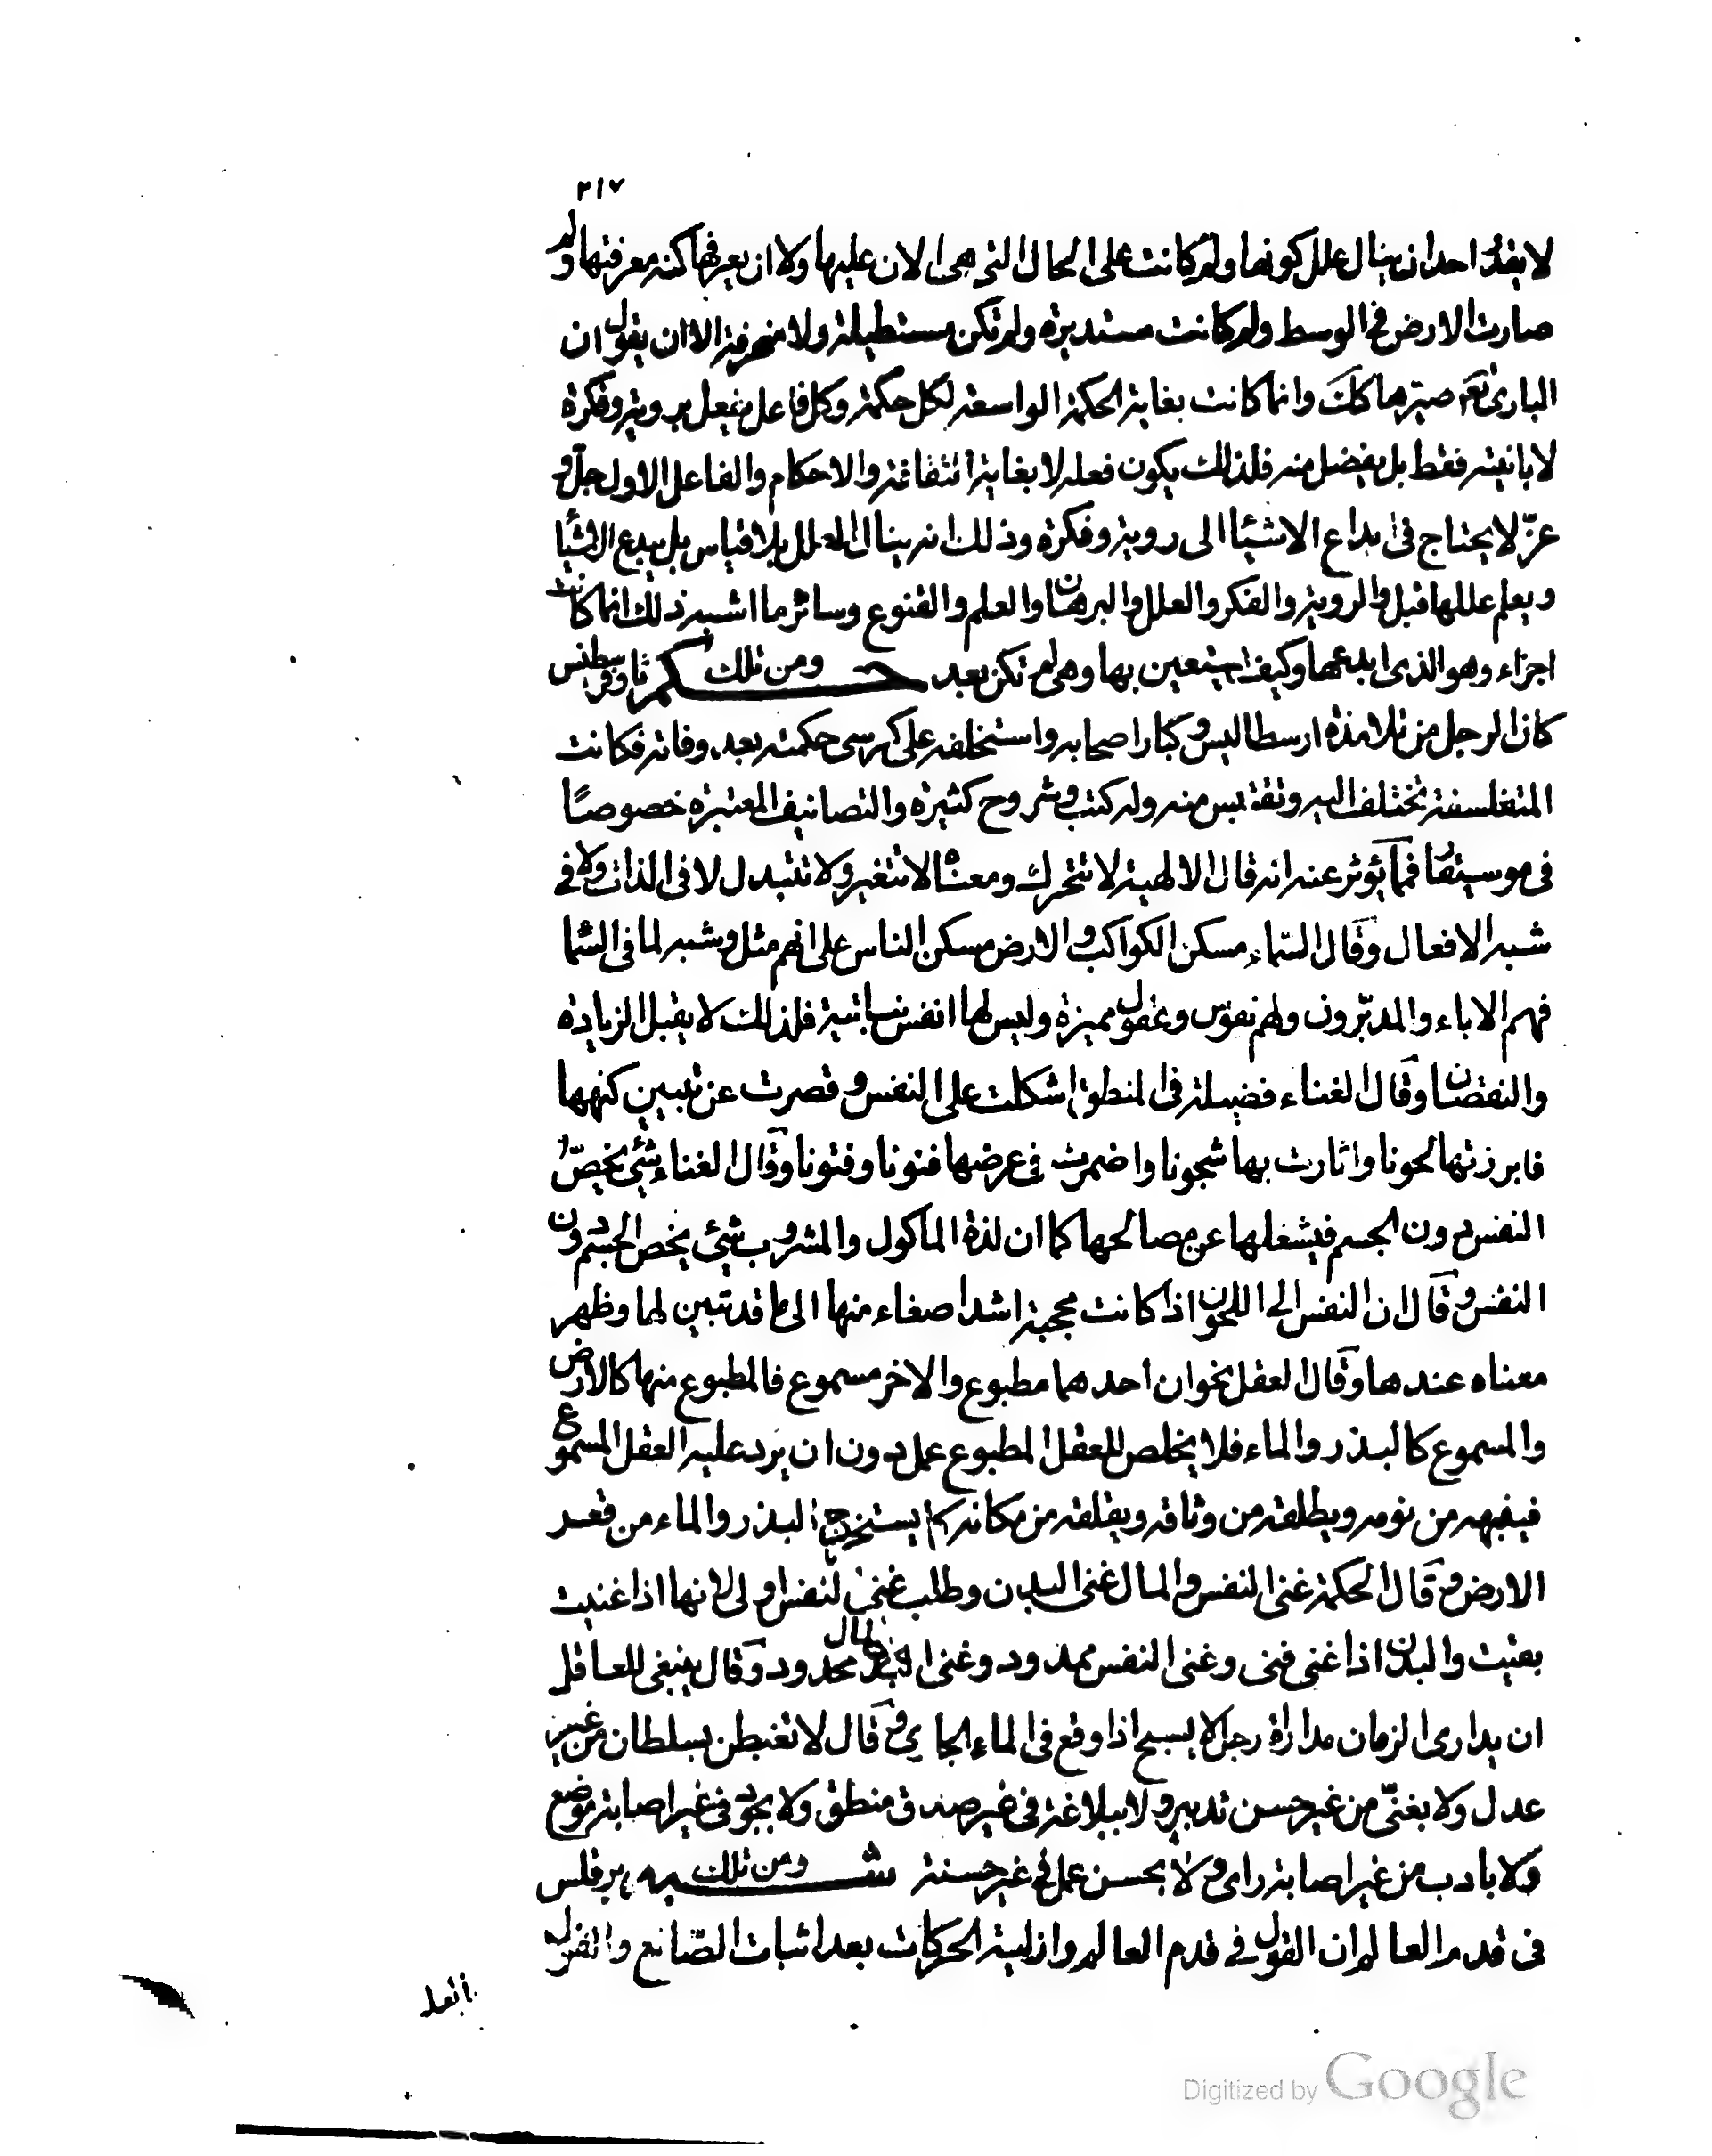 ٣١٧
لا يقدر احد ان ينال علل كونها ولم كانت على الحال التى هى الان عليها ولا ان يعرفها كنه معرفتها ولم
صارت الارض فى الوسط ولم كانت مستديرة ولم تكن مستطيلة ولا منحرفة الا ان يقول ان
البارئ تع صيرها كك وانما كانت بغاية الحكمة الواسعة لكل حكمة وكل فاعل يفعل بروية وفكرة
لا بانيته فقط بل يفضل منه فلذلك يكون فعله لا بغاية الثقافة والاحكام والفاعل الاول جل و
عزّ لا يحتاج فى ابداع الاشيا الى روية وفكرة وذلك انه ينال العلل بلا قياس بل يبدع الاشيا
ويعلم عللها قبل والروية والفكر والعلل والبرهان والعلم والقنوع وسائر ما اشبه ذلك انما كانت
اجزاء وهو الذى ابدعها وكيف يستعين بها وهى لم تكن بعد ومن تلك حكم ثاوفرسطيس
كان الرجل من تلامذة ارسطاليس وكبار اصحابه واستخلفه على كرسى حكمته بعد وفاته فكانت
المتفلسفة تختلف اليه وتقتبس منه وله كتب وشروح كثيرة والتصانيف المعتبرة خصوصًا
فى موسيقار فما يؤثر عنه انه قال الالهية لا تتحرك ومعناه لا تتغير ولا تتبدل لا فى الذات ولا فى
شبه الافعال وقال السّماء مسكن الكواكب والارض مسكن الناس على انهم مثل وشبه لما فى السّما
فهم الاباء والمدبّرون ولهم نفوس وعقول مميزة وليس لها انفس نباتية فلذلك لا يقبل الزيادة
والنقصان وقال الغناء فضيلة فى المنطق اشكلت على النفس وقصرت عن تبيين كنهها
فابرزتها لحونا واثارت بها شجونا واضمرت فى عرضها فنونا وفتونا وقال الغناء شئ يخصّ
النفس دون الجسم فيشغلها عن مصالحها كما ان لذة الماكول والمشروب شئ يخص الجسم دون
النفس وقال ان النفس الى اللحون اذا كانت محجبة اشد اصغاء منها الى ما قد تبين لها وظهر
معناه عندها وقال العقل نحوان احدهما مطبوع والاخر مسموع فالمطبوع منها كالارض
والمسموع كالبذر والماء فلا يخلص للعقل المطبوع عمل دون ان يرد عليه العقل المسموع
فينبهه من نومه ويطلقه من وثاقه ويقلقه من مكانه كما يستخرج البذر والماء من قعر
الارض وقال الحكمة غنى النفس والمال غنى البدن وطلب غنى النفس اولى لانها اذا غنيت
بقيت والبدن اذا غنى فنى وغنى النفس ممدود وغنى المال محدود وقال ينبغى للعاقل
ان يدارى الزمان مداراة رجل لا يسبح اذا وقع فى الماء الجارى وقال لا تغبطن بسلطان من غير
عدل ولا بغنىّ من غير حسن تدبير ولا ببلاغة فى غير صدق منطق ولا بجود فى غير اصابة موضع
ولا بادب من غير اصابة راى ولا بحسن عمل فى غير حسنة ومن تلك شبه برقلس
فى قدم العالم ان القول فى قدم العالم وازلية الحركات بعد اثبات الصّانع والقول
Digitized by Google